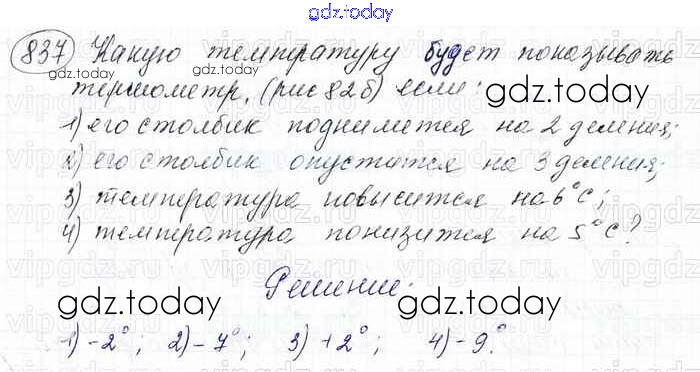 gdz.today
837 Какую температуру будет показывать
gdz.today
термометр, (рис 82б) если:
gdz.today
1) его столбик поднимется на 2 деления;
2) его столбик опустится на 3 деления;
3) температура повысится на 6°С;
4) температура понизится на 5°С?
Решение:
gdz.today
gdz.today
1) -2°; 2) -7°; 3) +2°; 4) -9°.